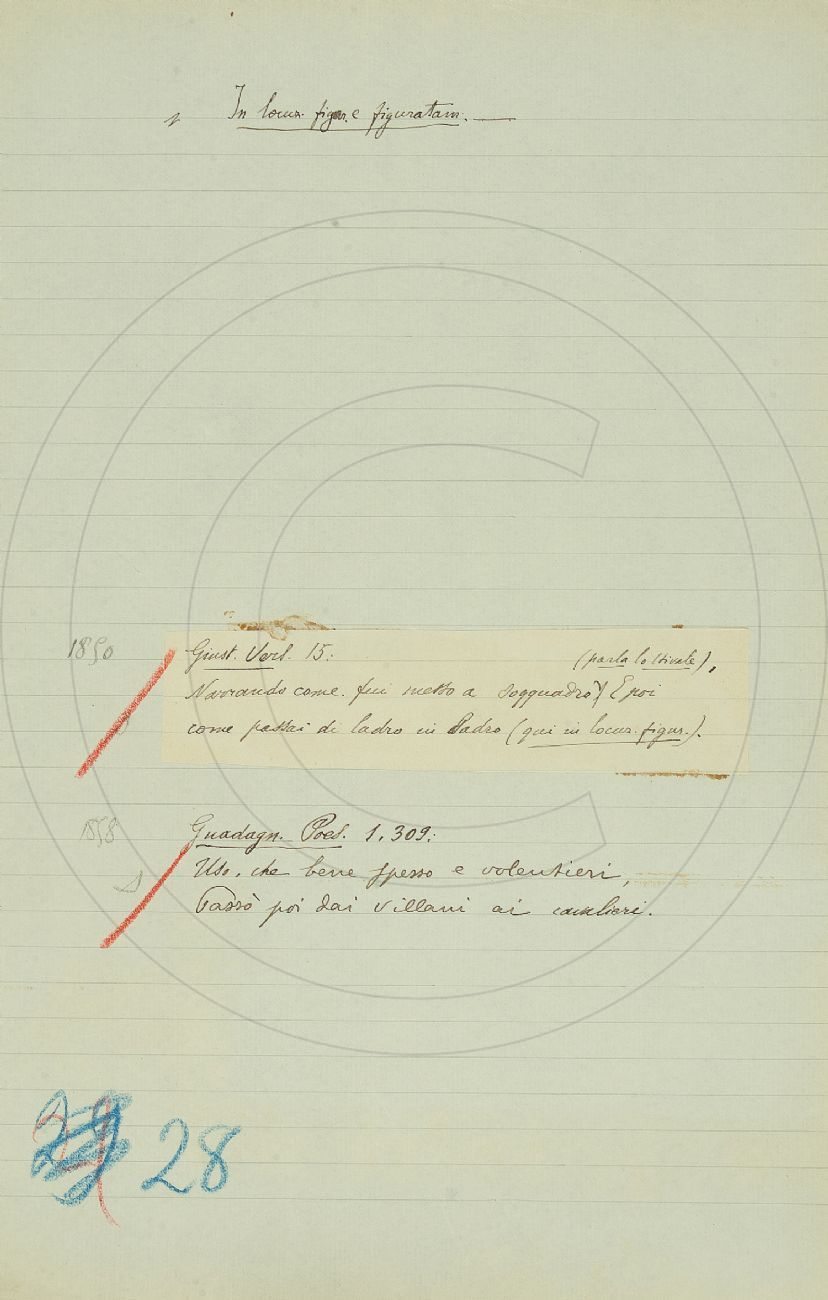 In locuz. figur. e figuratam. —
1850
Giust. Vers. 15: (parla lo Stivale),
Narrando come fui messo a soqquadro, E poi
come passai di ladro in ladro (qui in locuz. figur.).
1858
Guadagn. Poes. 1, 309:
Uso, che bene spesso e volentieri,
Passò poi dai villani ai cavalieri.
28